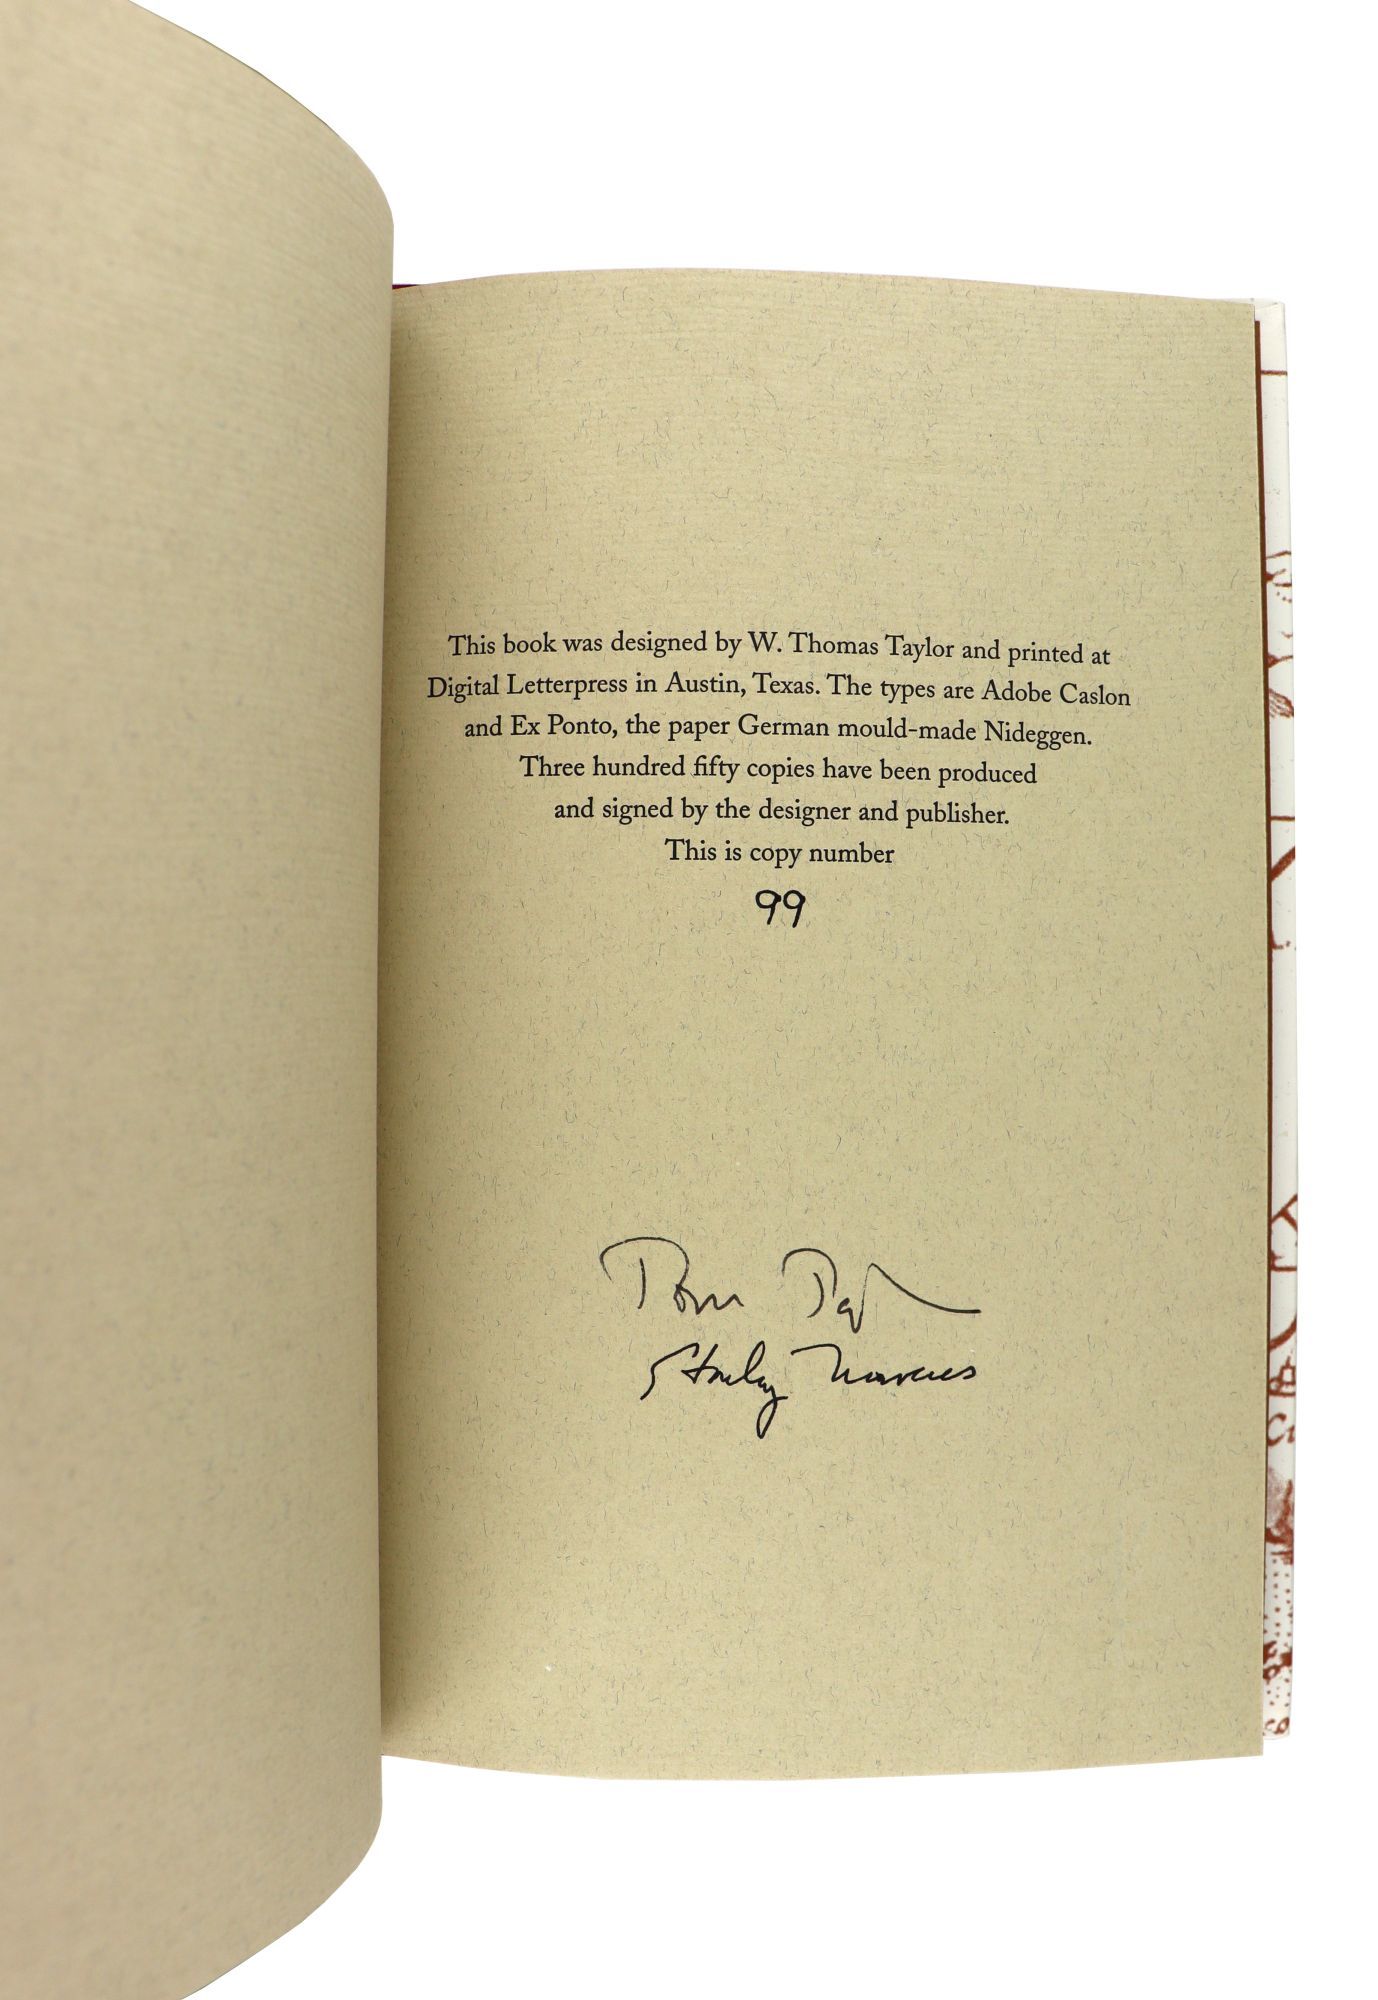 This book was designed by W. Thomas Taylor and printed at
Digital Letterpress in Austin, Texas. The types are Adobe Caslon
and Ex Ponto, the paper German mould-made Nideggen.
Three hundred fifty copies have been produced
and signed by the designer and publisher.
This is copy number
99
Tom Taylor
Stanley Marcus